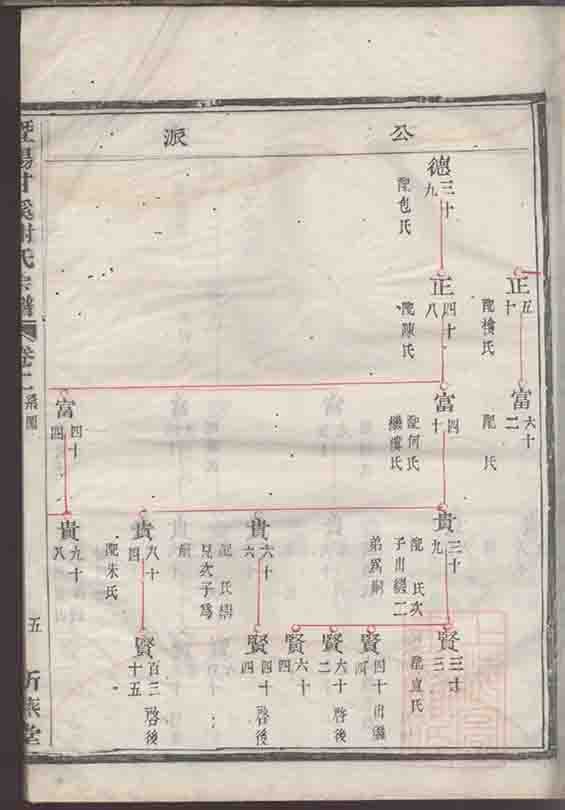 公
派
德
三十
九
配包氏
正
五
十
配
氏
正
四十
八
配陳氏
富
六十
二
配 氏
富
四
十
配何氏
繼虞氏
富
四十
四
貴
三十
九
配 氏 次
子出繼二
弟爲嗣
貴
六十
六
配 氏 繼
兄次子爲
嗣
貴
八十
四
配朱氏
貴
九十
八
賢
三十
三
配宣氏
賢
四十 出繼
四
賢
六十 啓後
二
賢
六十
四
賢
四十 啓後
四
賢
百三 啓後
十五
暨陽甘溪謝氏宗譜
卷二
系圖
五